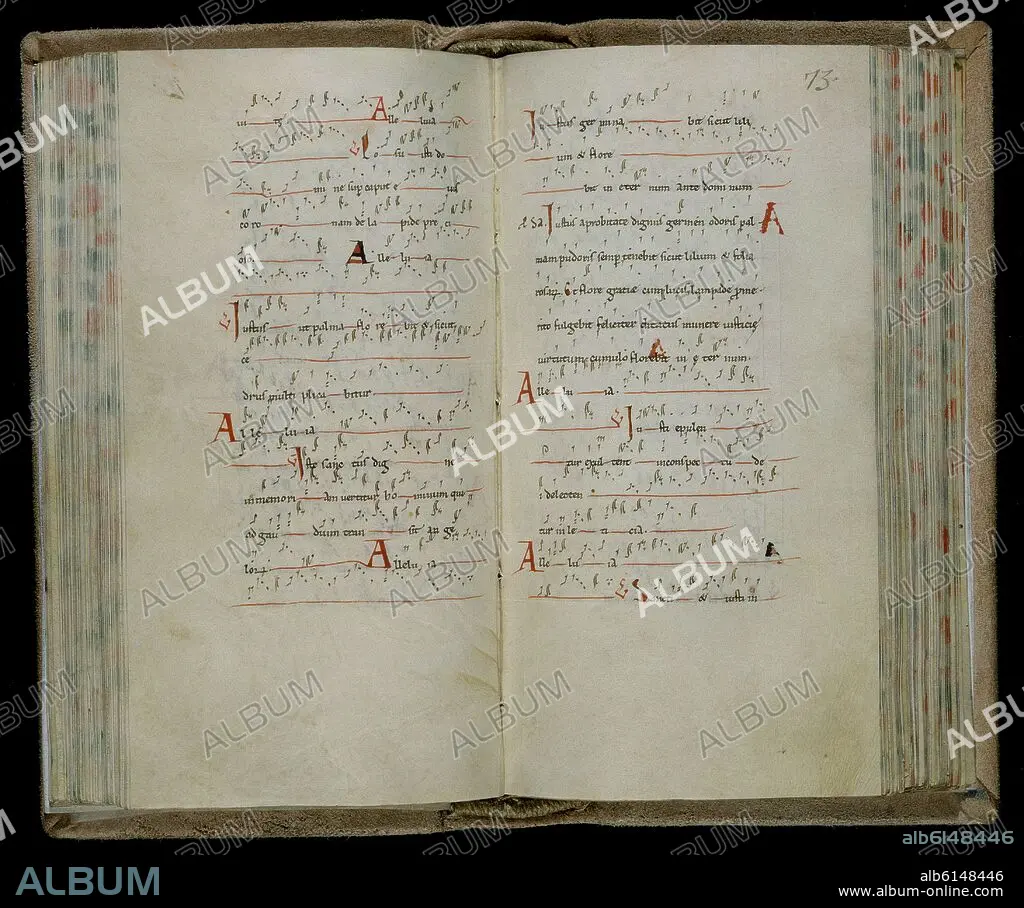 Alle luia
Po su isti do
mi ne sup caput e ius
coro nam de la pide pre ci
oso. Alle lu ia
Iustus ut palma flo re bit & sicut
ce
drus multi plica bitur
Alle lu ia
Iste sanc tus dig ne
in memori am vertitur ho minum que
ad gau dium tran sit an ge
lor Allelu ia
73
Iustus ger mina bit sicut lili
um & flore
bit in eter num ante dominum
Iustus a probitate dignus germen odoris pal
mam pudoris semp tenebit sicut lilium & folia
rosar. Et flore gratiae cum lucis lampade p me
rito fulgebit feliciter ditatus munere iusticie
virtutum cumulo florebit in e ter num.
Alle lu ia.
Iu sti epulen
tur exul tent in conspec tu de
i delecten
tur in le ti cia.
Alle lu ia
& iusti in
ALBUM
alb6148446
ALBUM
alb6148446
www.album-online.com